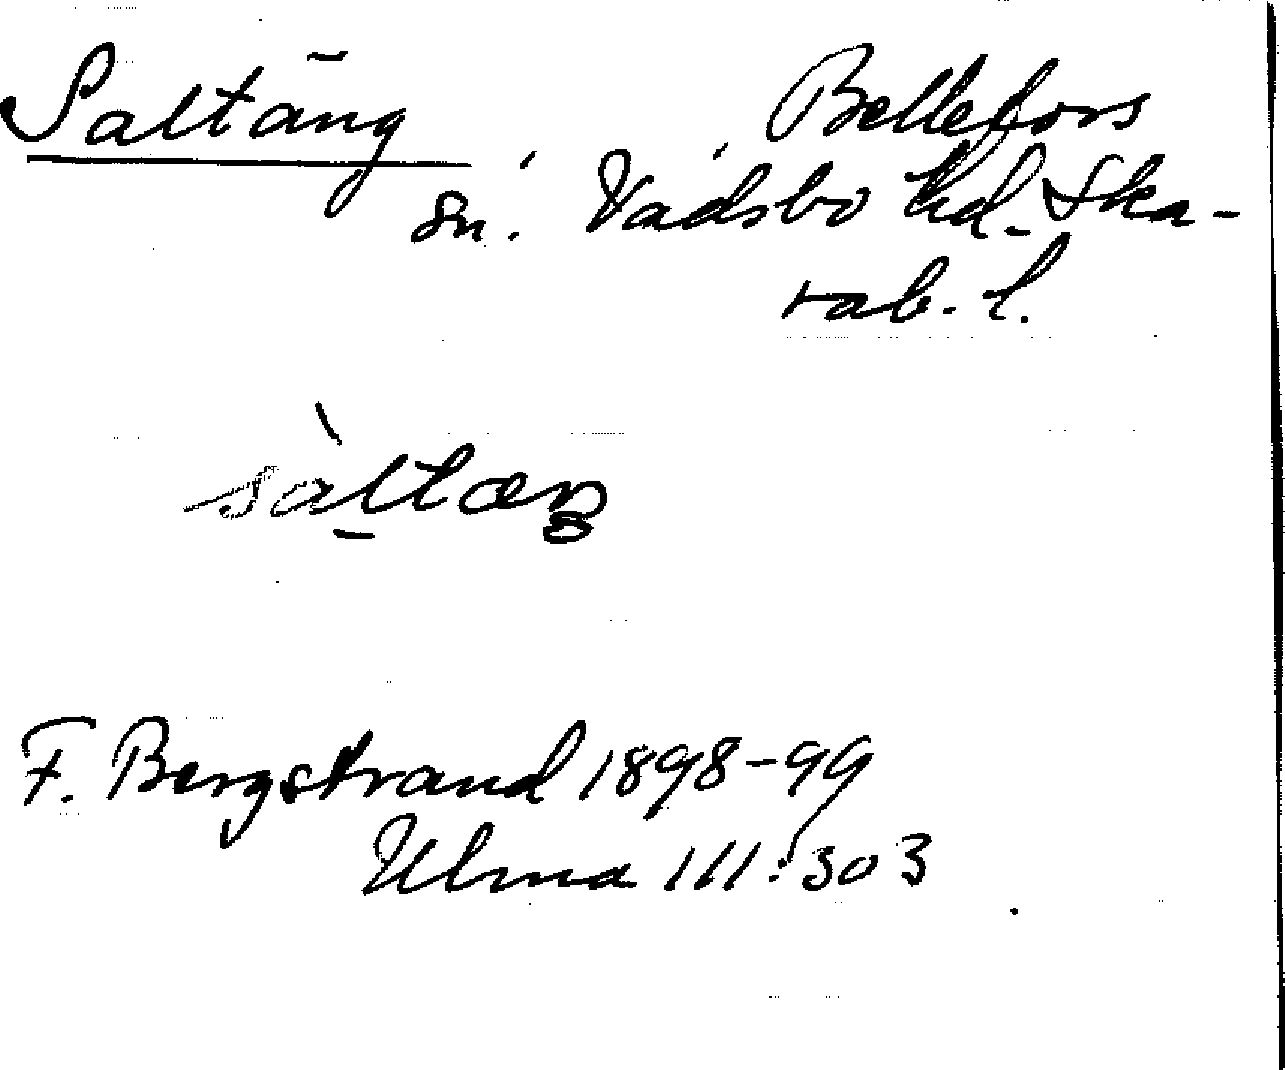 Saltäng Bellefors
sn. Vadsbo hd. Ska-
rab. l.
sàltæŋ
F. Bergstrand 1898-99
Ulma 111:303